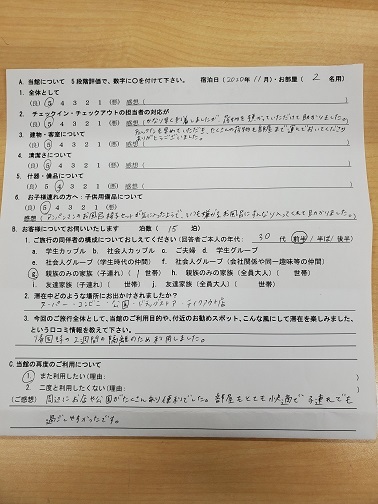 A. 当館について 5段階評価で、数字に○を付けて下さい。 宿泊日(2020年 11月)・お部屋( 2 名用)
1. 全体として
(良) 5 4 3 2 1 (悪) 感想( )
2. チェックイン・チェックアウトの担当者の対応が
(良) 5 4 3 2 1 (悪) 感想(かなり早く到着しましたが、荷物を預かっていただけて助かりました。
ありがとうございました。
3. 建物・客室について
(良) 5 4 3 2 1 (悪) 感想(
4. 清潔さについて
(良) 5 4 3 2 1 (悪) 感想( )
5. 什器・備品について
(良) 5 4 3 2 1 (悪) 感想( )
6. お子様連れの方へ・子供用備品について
感想(アンパンマンのお風呂 )
B. お客様についてお伺いいたします 泊数( 15 泊)
1. ご旅行の同伴者の構成についておしえてください(回答者ご本人の年代: 30 代 前半/半ば/後半)
a. 学生カップル b. 社会人カップル c. ご夫婦 d. 学生グループ
e. 社会人グループ(学生時代の仲間) f. 社会人グループ(会社関係や同一趣味等の仲間)
g. 親族のみの家族(子連れ)( 1 世帯) h. 親族のみの家族(全員大人)( 世帯)
i. 友達家族(子連れ)( 世帯) j. 友達家族(全員大人)( 世帯)
2. 滞在中どのような場所にお出かけされましたか?
スーパー・コンビニ・公園・ドラッグストア・テイクアウト店
3. 今回のご旅行全体として、当館のご利用目的や、付近のお勧めスポット、こんな風にして滞在を楽しみました、
という口コミ情報を教えて下さい。
帰国時の2週間の隔離のため利用しました。
C. 当館の再度のご利用について
1. また利用したい(理由: )
2. 二度と利用したくない(理由: )
(ご感想) 周辺にお店や公園がたくさんあり便利でした。部屋もとても快適で子連れでも
過ごしやすかったです。